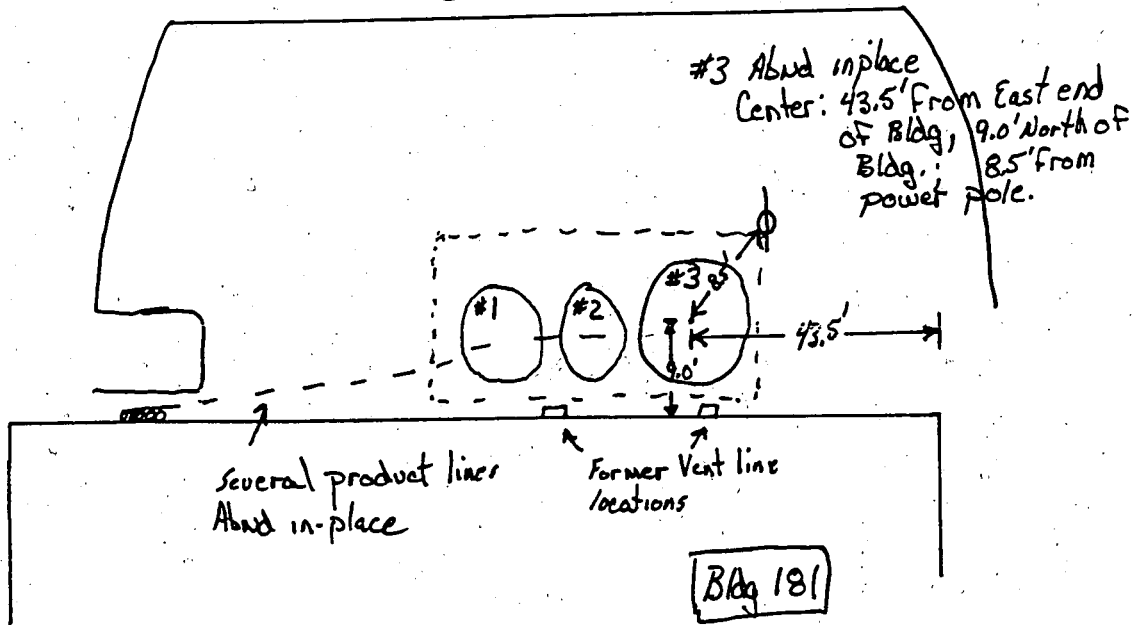 #3 Abnd inplace
Center: 43.5' From East end
of Bldg, 9.0' North of
Bldg.; 8.5' From
power pole.
#1
#2
#3
8.5'
43.5'
9.0'
Several product lines
Abnd in-place
Former Vent line
locations
Bldg 181